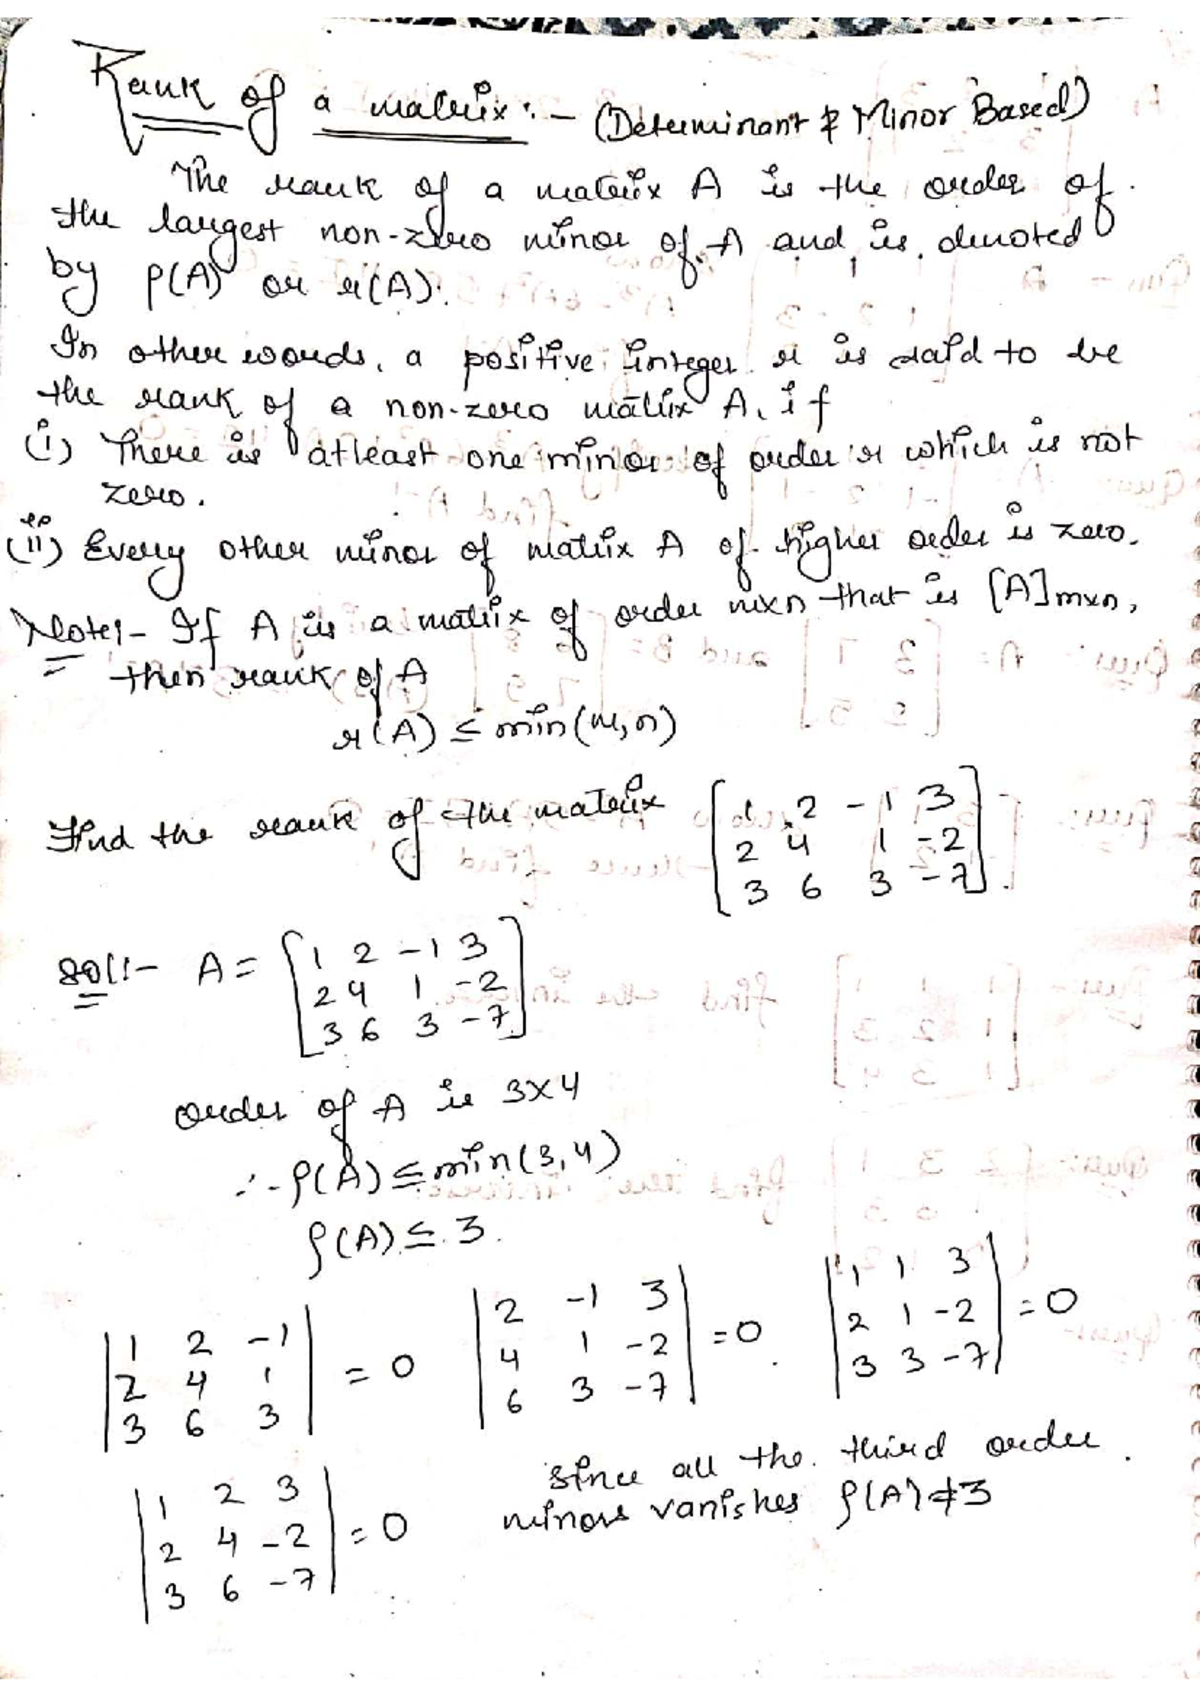 Rank of a matrix :- (Determinant & Minor Based)
The rank of a matrix A is the order of
the largest non-zero minor of A and is denoted
by ρ(A) or r(A).
In other words, a positive integer r is said to be
the rank of a non-zero matrix A, if
(i) There is atleast one minor of order r which is not
zero.
(ii) Every other minor of matrix A of higher order is zero.
Note:- If A is a matrix of order mxn that is [A]mxn,
then rank of A
r(A) ≤ min(m,n)
Find the rank of the matrix
[1 2 -1 3
2 4 1 -2
3 6 3 -7].
Sol:- A = [1 2 -1 3
2 4 1 -2
3 6 3 -7]
order of A is 3x4
∴ ρ(A) ≤ min(3,4)
ρ(A) ≤ 3.
|1 2 -1
2 4 1
3 6 3| = 0
|2 -1 3
4 1 -2
6 3 -7| = 0
|1 1 3
2 1 -2
3 3 -7| = 0
|1 2 3
2 4 -2
3 6 -7| = 0
Since all the third order
minors vanishes ρ(A) ≠ 3